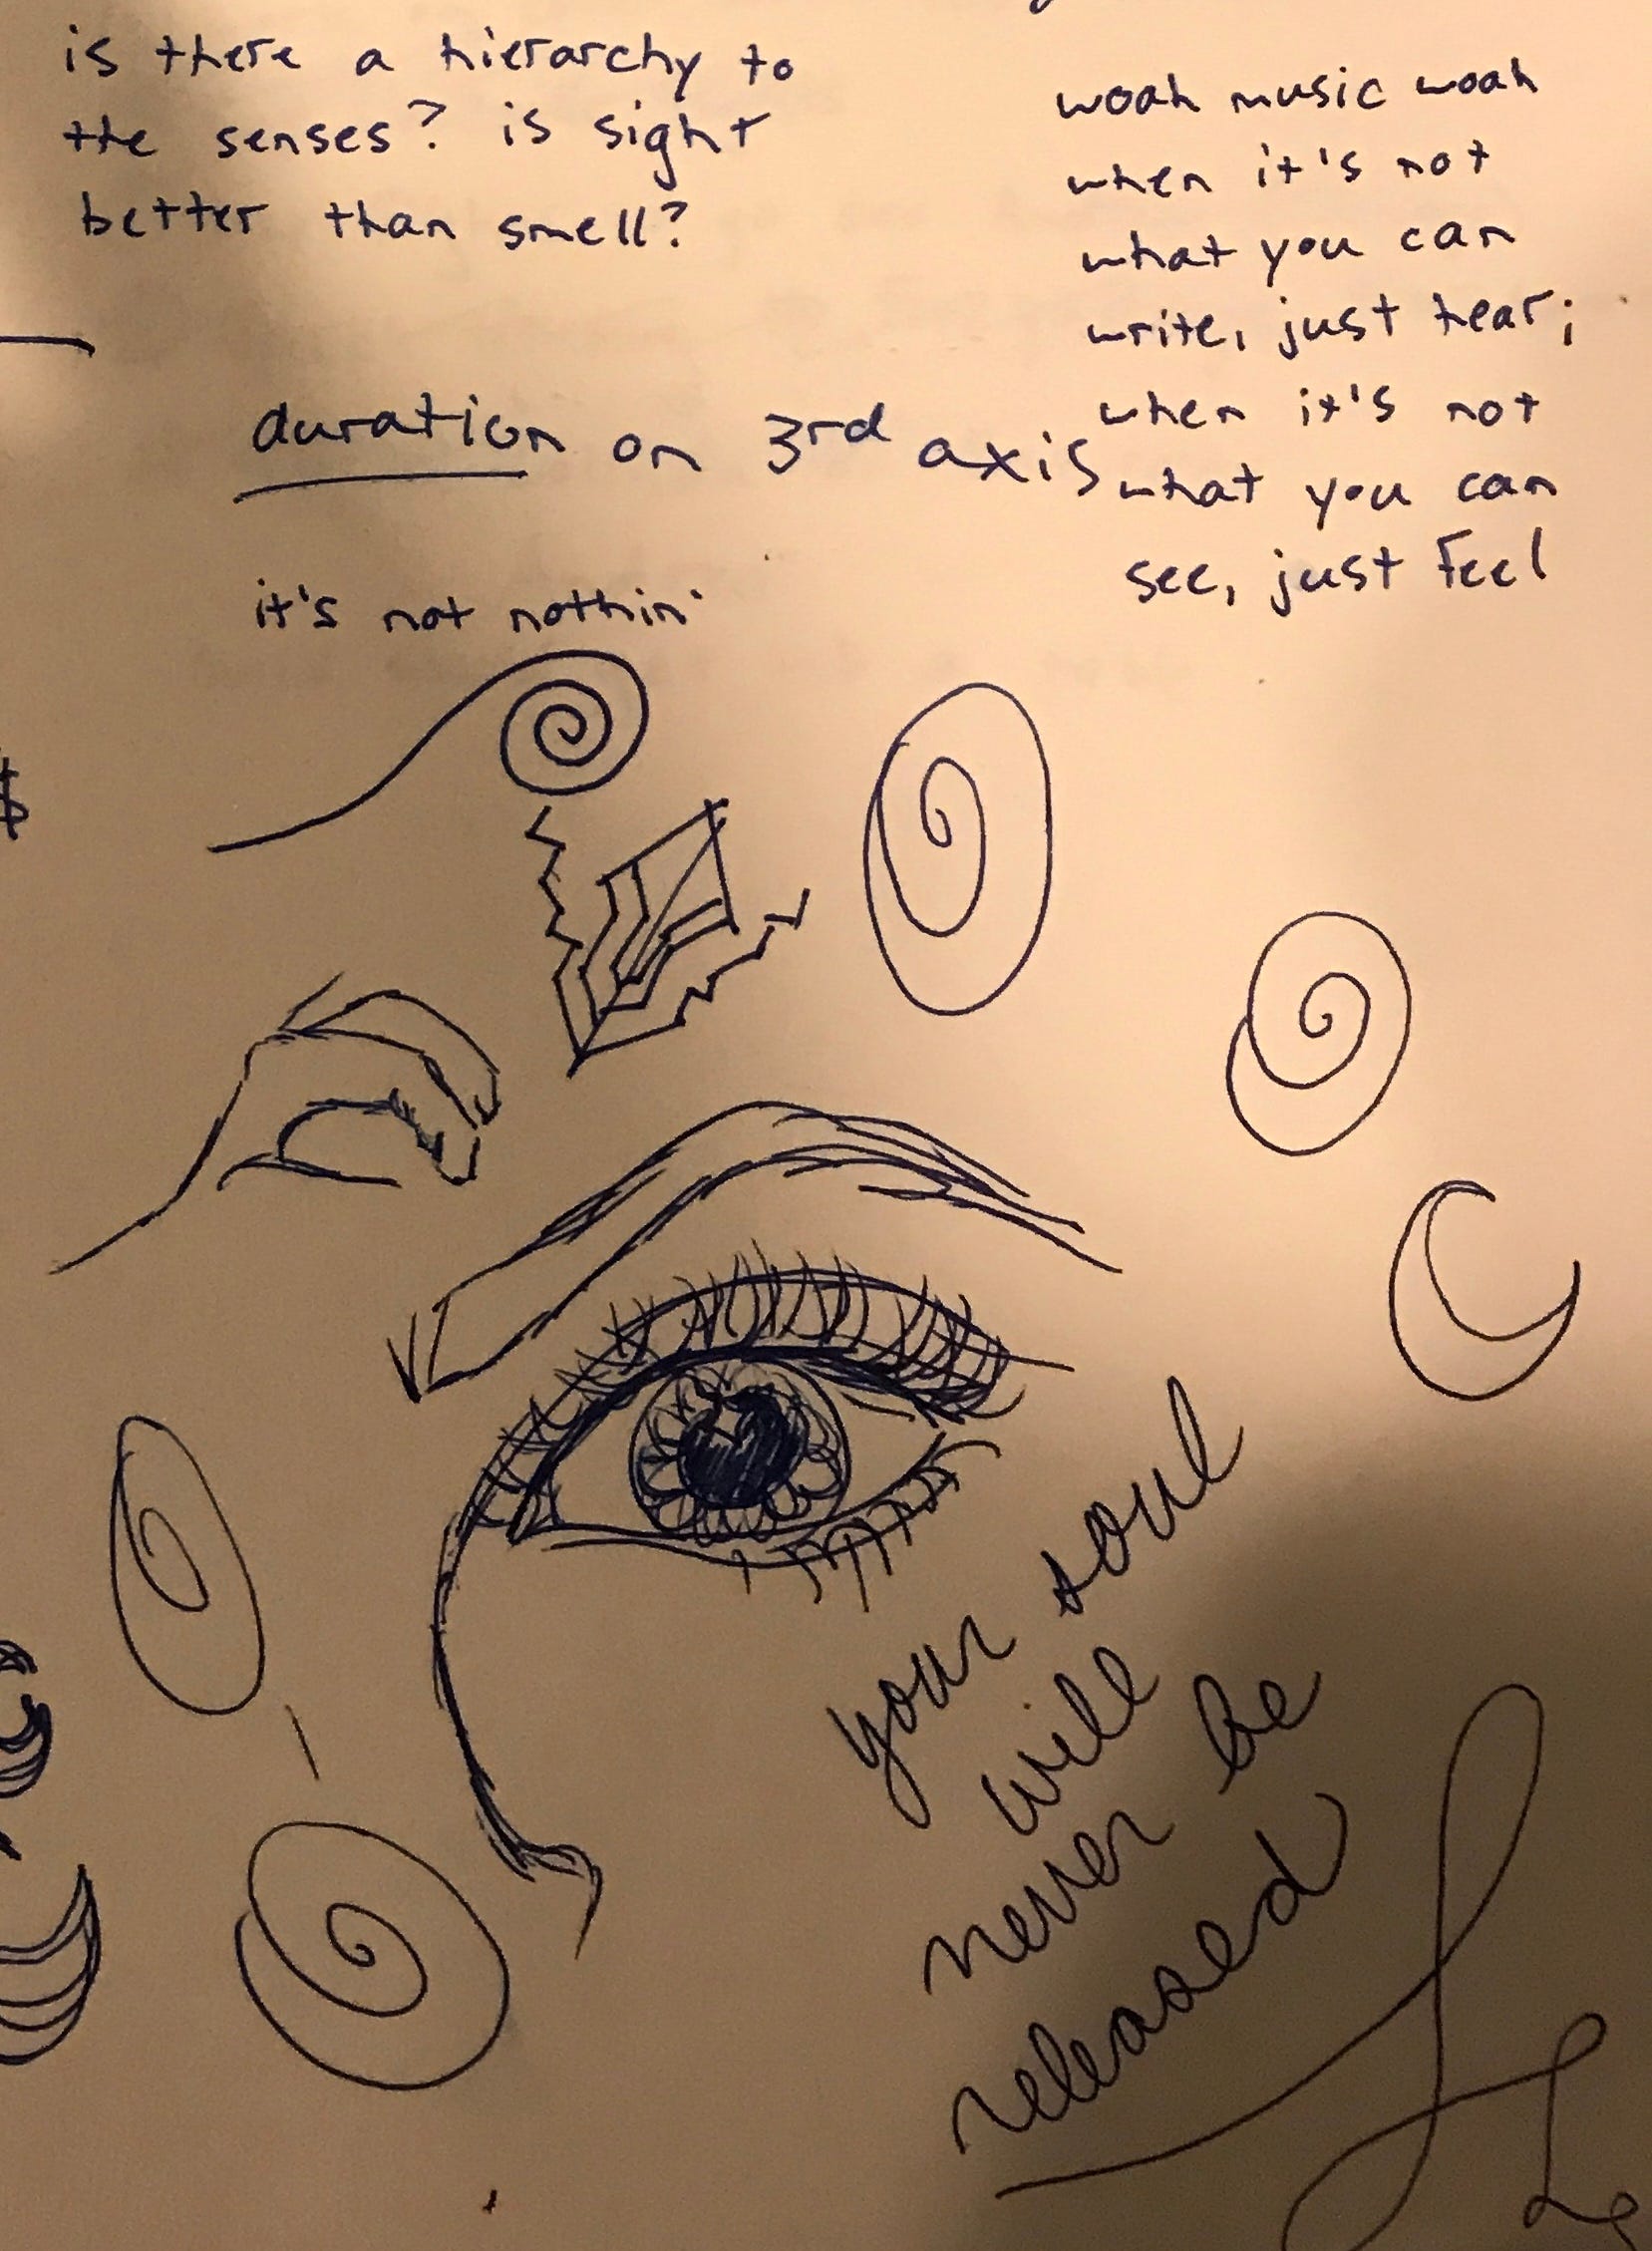 is there a hierarchy to
the senses? is sight
better than smell?
woah music woah
when it's not
what you can
write, just hear;
when it's not
what you can
see, just feel
duration on 3rd axis
it's not nothin'
$
your soul
will
never be
released